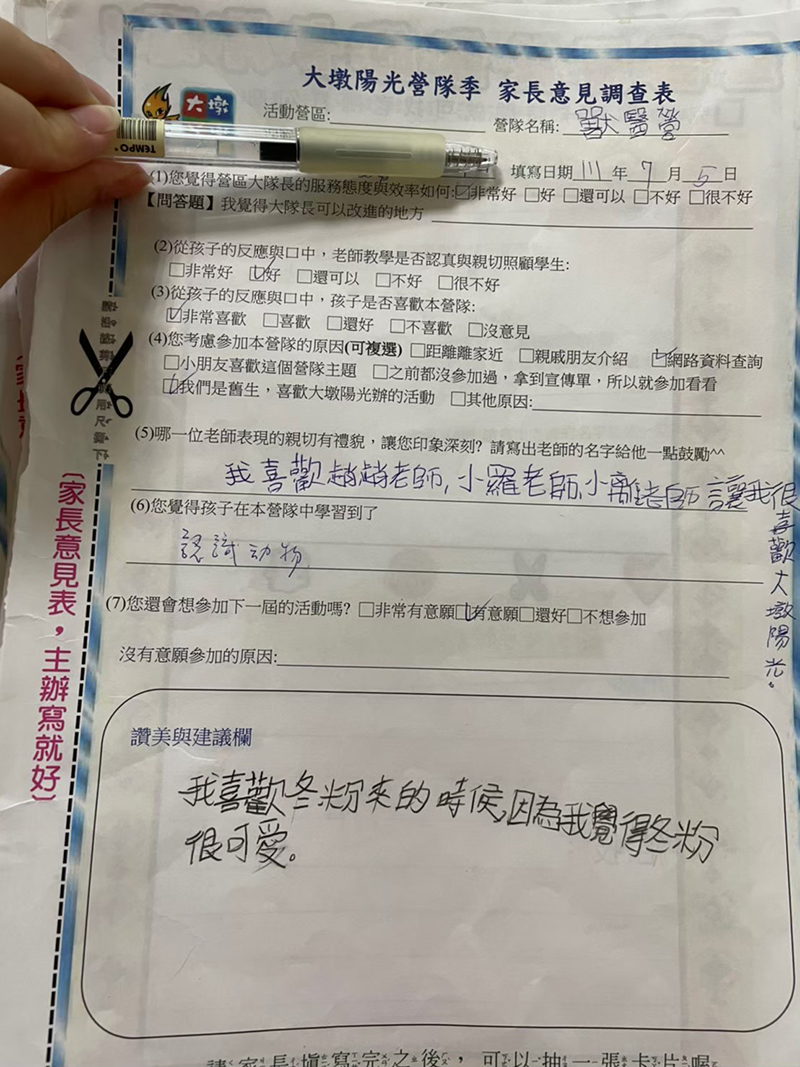 大墩陽光營隊季 家長意見調查表
大墩
活動營區:
營隊名稱: 獸醫營
TEMPO
填寫日期 111 年 7 月 5 日
(1)您覺得營區大隊長的服務態度與效率如何:☑非常好 □好 □還可以 □不好 □很不好
【問答題】我覺得大隊長可以改進的地方
(2)從孩子的反應與口中，老師教學是否認真與親切照顧學生:
□非常好 ☑好 □還可以 □不好 □很不好
(3)從孩子的反應與口中，孩子是否喜歡本營隊:
☑非常喜歡 □喜歡 □還好 □不喜歡 □沒意見
(4)您考慮參加本營隊的原因(可複選) □距離離家近 □親戚朋友介紹 ☑網路資料查詢
□小朋友喜歡這個營隊主題 □之前都沒參加過，拿到宣傳單，所以就參加看看
☑我們是舊生，喜歡大墩陽光辦的活動 □其他原因:
(5)哪一位老師表現的親切有禮貌，讓您印象深刻? 請寫出老師的名字給他一點鼓勵^^
我喜歡趙趙老師,小羅老師,小離老師讓我很
喜歡大墩陽光。
(6)您覺得孩子在本營隊中學習到了
認識动物
(7)您還會想參加下一屆的活動嗎? □非常有意願☑有意願□還好□不想參加
沒有意願參加的原因:
〔家長意見表，主辦寫就好〕
讚美與建議欄
我喜歡冬粉來的時候,因為我覺得冬粉
很可愛。
請家長填寫完之後，可以抽一張卡片喔